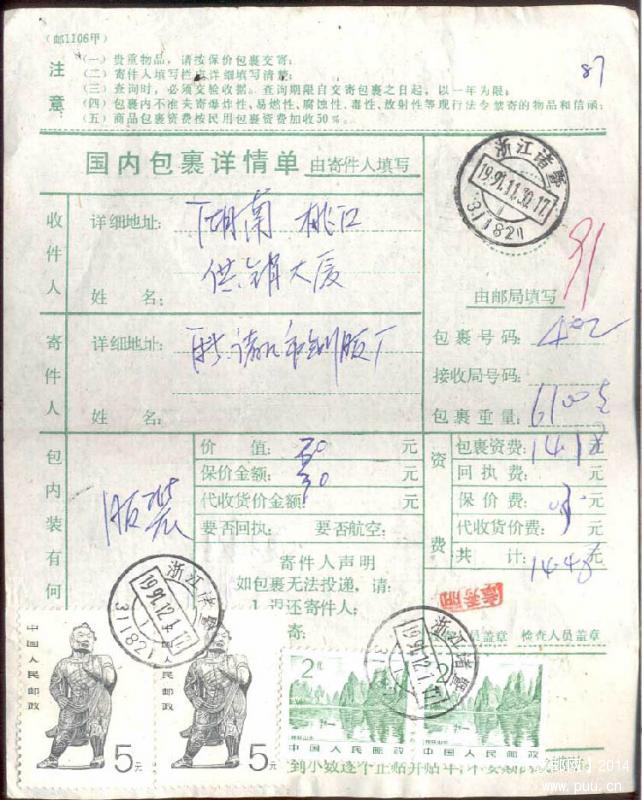 (邮1106甲)
注意
(一) 贵重物品，请按保价包裹交寄；
(二) 寄件人填写栏应详细填写清楚；
(三) 查询时，必须交验收据。查询期限自交寄包裹之日起，以一年为限；
(四) 包裹内不准夹寄爆炸性、易燃性、腐蚀性、毒性、放射性等现行法令禁寄的物品和信函；
(五) 商品包裹资费按民用包裹资费加收50%。
87
国内包裹详情单 由寄件人填写
浙江诸暨
1991.11.30.17
311821
收件人
详细地址：湖南 桃江
供销大厦
姓名：
由邮局填写
91
寄件人
详细地址：
姓名：
包裹号码：402
接收局号码：
包裹重量：6100克
包内装有何
服装
价值：30元
保价金额：30元
代收货价金额：元
要否回执： 要否航空：
资费
包裹资费：14.18元
回执费：元
保价费：.3元
代收货价费：元
共计：14.48元
寄件人声明
如包裹无法投递，请：
1.退还寄件人；
寄：
员盖章 检查人员盖章
浙江诸暨
1991.12.1.17
311821
浙江诸暨
1991.12.1.17
311
中国人民邮政
5元
中国人民邮政
5元
2元
桂林山水
中国人民邮政
2
中国人民邮政
2014
www.puu.cn